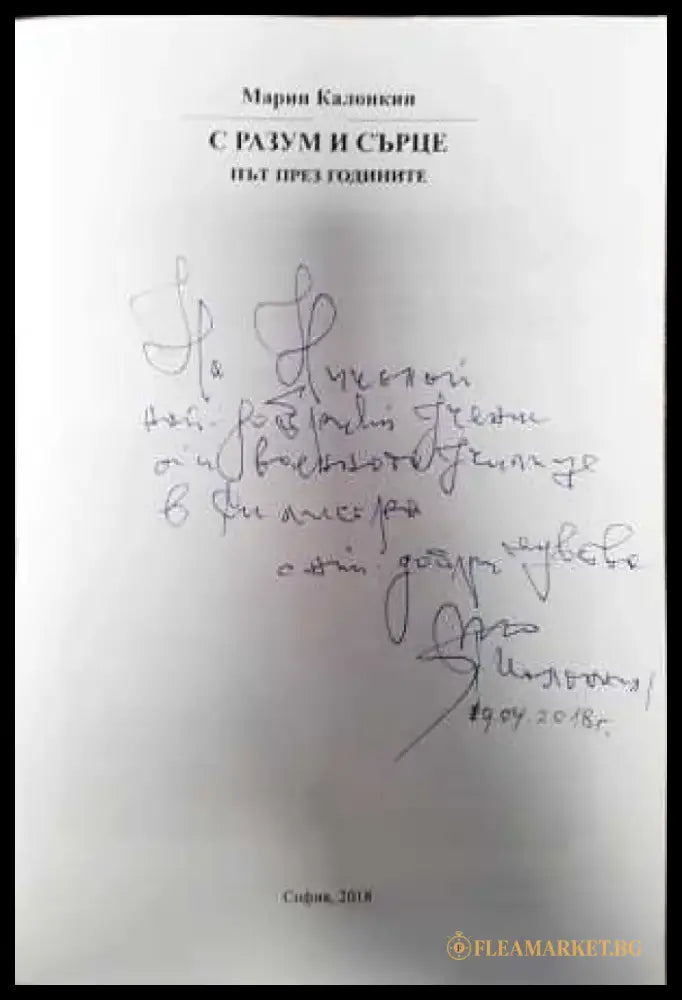 Марин Калонкин
С РАЗУМ И СЪРЦЕ
ПЪТ ПРЕЗ ГОДИНИТЕ
На Николай
най-добрият
от военното училище
в
с най-добри чувства
Калонкин
19.04.2018г.
София, 2018
FLEAMARKET.BG